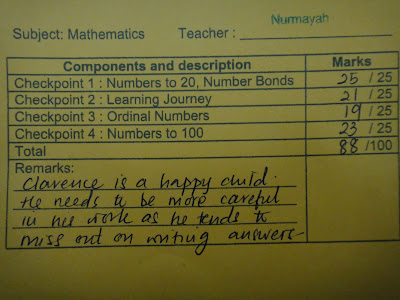 Nurmayah
Subject: Mathematics Teacher :
Components and description Marks
Checkpoint 1 : Numbers to 20, Number Bonds 25 / 25
Checkpoint 2 : Learning Journey 21 / 25
Checkpoint 3 : Ordinal Numbers 19 / 25
Checkpoint 4 : Numbers to 100 23 / 25
Total 88 /100
Remarks:
Clarence is a happy child.
He needs to be more careful
in his work as he tends to
miss out on writing answers-